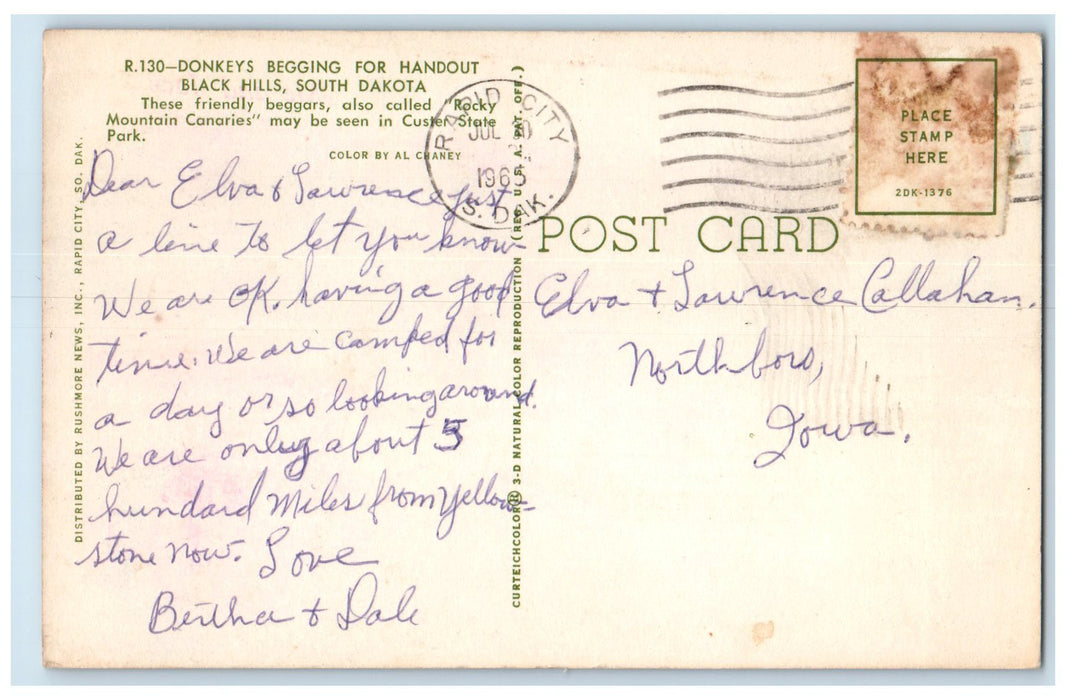 R.130—DONKEYS BEGGING FOR HANDOUT
BLACK HILLS, SOUTH DAKOTA
These friendly beggars, also called "Rocky
Mountain Canaries" may be seen in Custer State
Park.
COLOR BY AL CHANEY
Dear Elva & Lawrence just
a line to let you know
We are OK. having a good
time. We are camped for
a day or so looking around.
We are only about 5
hundard Miles from yellow-
stone now. Love
Bertha & Dale
DISTRIBUTED BY RUSHMORE NEWS, INC., RAPID CITY, SO. DAK.
CURTEICHCOLOR® 3-D NATURAL COLOR REPRODUCTION (REG. U. S. A. PAT. OFF.)
RAPID CITY
JUL
S. DAK.
PLACE
STAMP
HERE
2DK-1376
POST CARD
Elva & Lawrence Callahan.
Northboro,
Iowa.